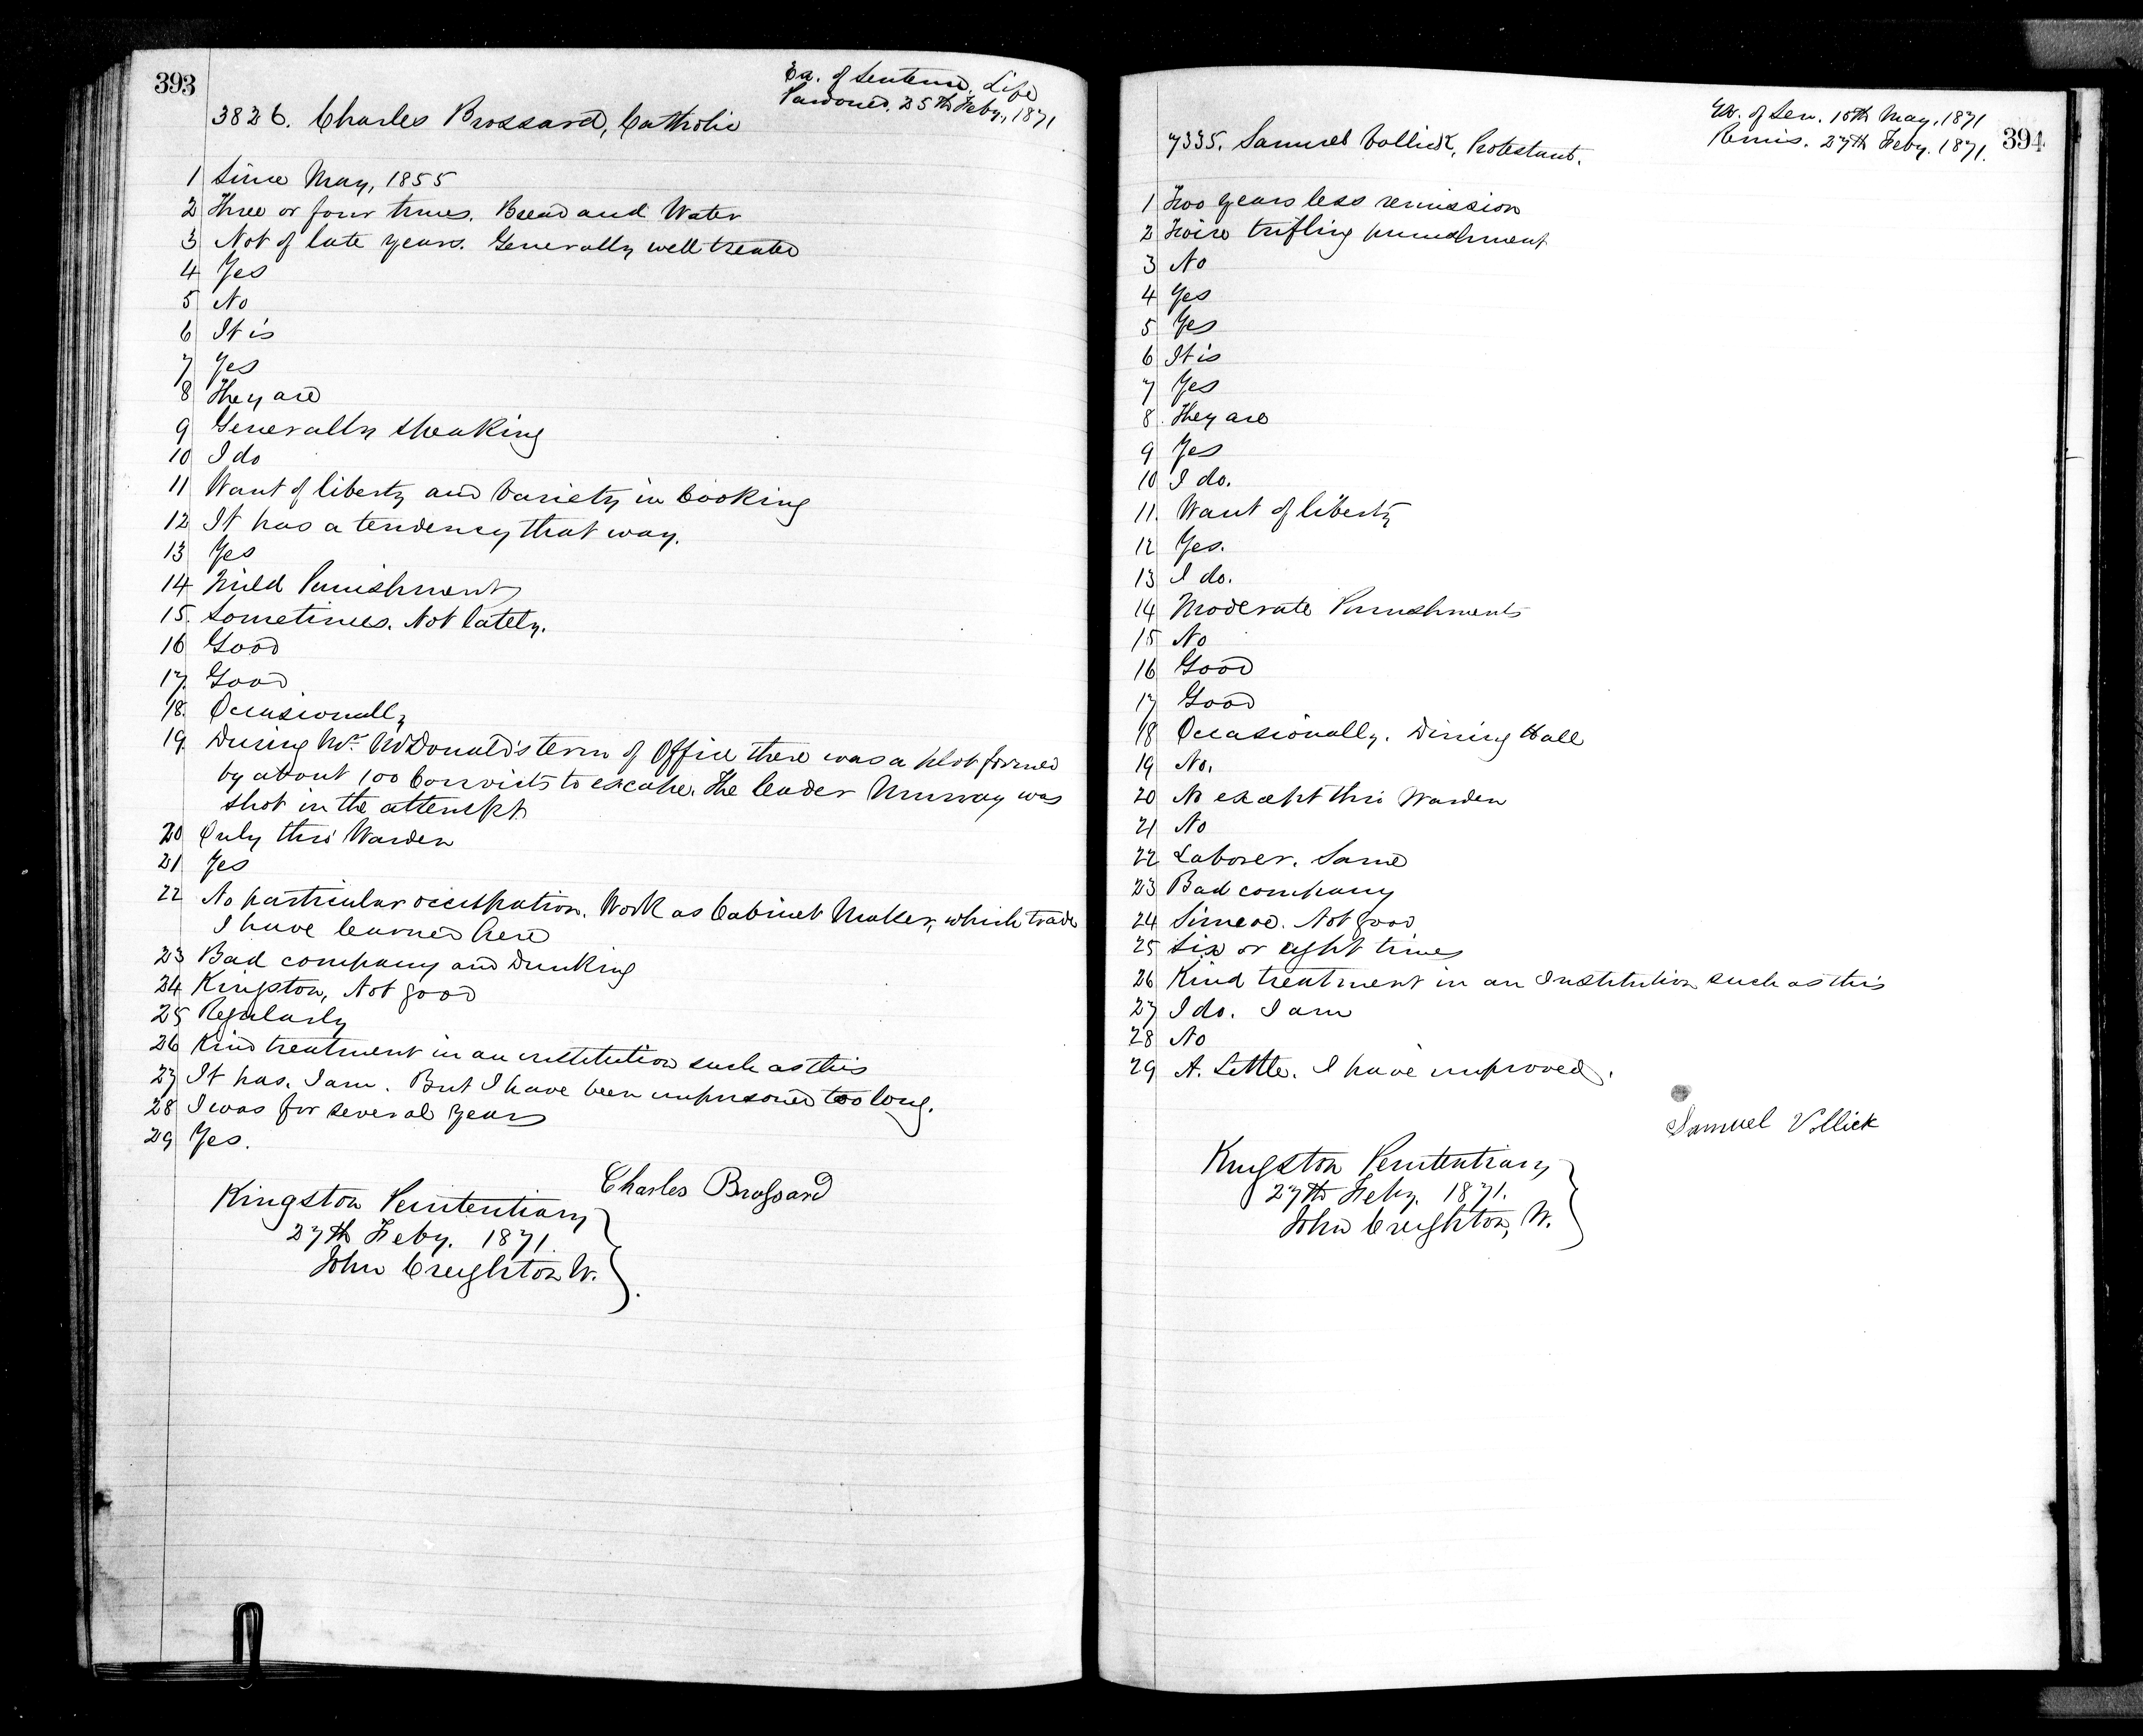 393
Ex. of Sentence, Life
Pardoned. 25th Feby., 1871
3826. Charles Brossard, Catholic
1 Since May, 1855
2 Three or four times. Bread and Water
3 Not of late years. Generally well treated
4 Yes
5 No
6 It is
7 Yes
8 They are
9 Generally speaking
10 I do
11 Want of liberty and Variety in Cooking
12 It has a tendency that way.
13 Yes
14 Mild Punishment
15. Sometimes. Not lately.
16 Good
17. Good
18. Occasionally
19. During Mr. McDonald's term of Office there was a plot formed
by about 100 Convicts to escape. The leader Murray was
shot in the attempt
20 Only this Warden
21 Yes
22 No particular occupation. Work as Cabinet Maker, which trade
I have learned here
23 Bad company and Drinking
24 Kingston, Not good
25 Regularly
26 Kind treatment in an institution such as this
27 It has. I am. But I have been imprisoned too long.
28 I was for several years
29 Yes.
Charles Brossard
Kingston Penitentiary
27th Feby. 1871.
John Creighton W.
394
Ex. of Sen. 15th May, 1871
Remis. 27th Feby. 1871.
7335. Samuel Vollick, Protestant.
1 Two years less remission
2 Twice trifling punishment
3 No
4 Yes
5 Yes
6 It is
7 Yes
8. They are
9 Yes
10 I do.
11. Want of liberty
12 Yes.
13 I do.
14 Moderate Punishments
15 No
16 Good
17 Good
18 Occasionally. Dining Hall
19 No.
20 No except this Warden
21 No
22 Laborer. Same
23 Bad company
24 Simcoe. Not good
25 Six or eight times
26 Kind treatment in an Institution such as this
27 I do. I am
28 No
29 A. Little. I have improved.
Samuel Vollick
Kingston Penitentiary
27th Feby. 1871.
John Creighton, W.